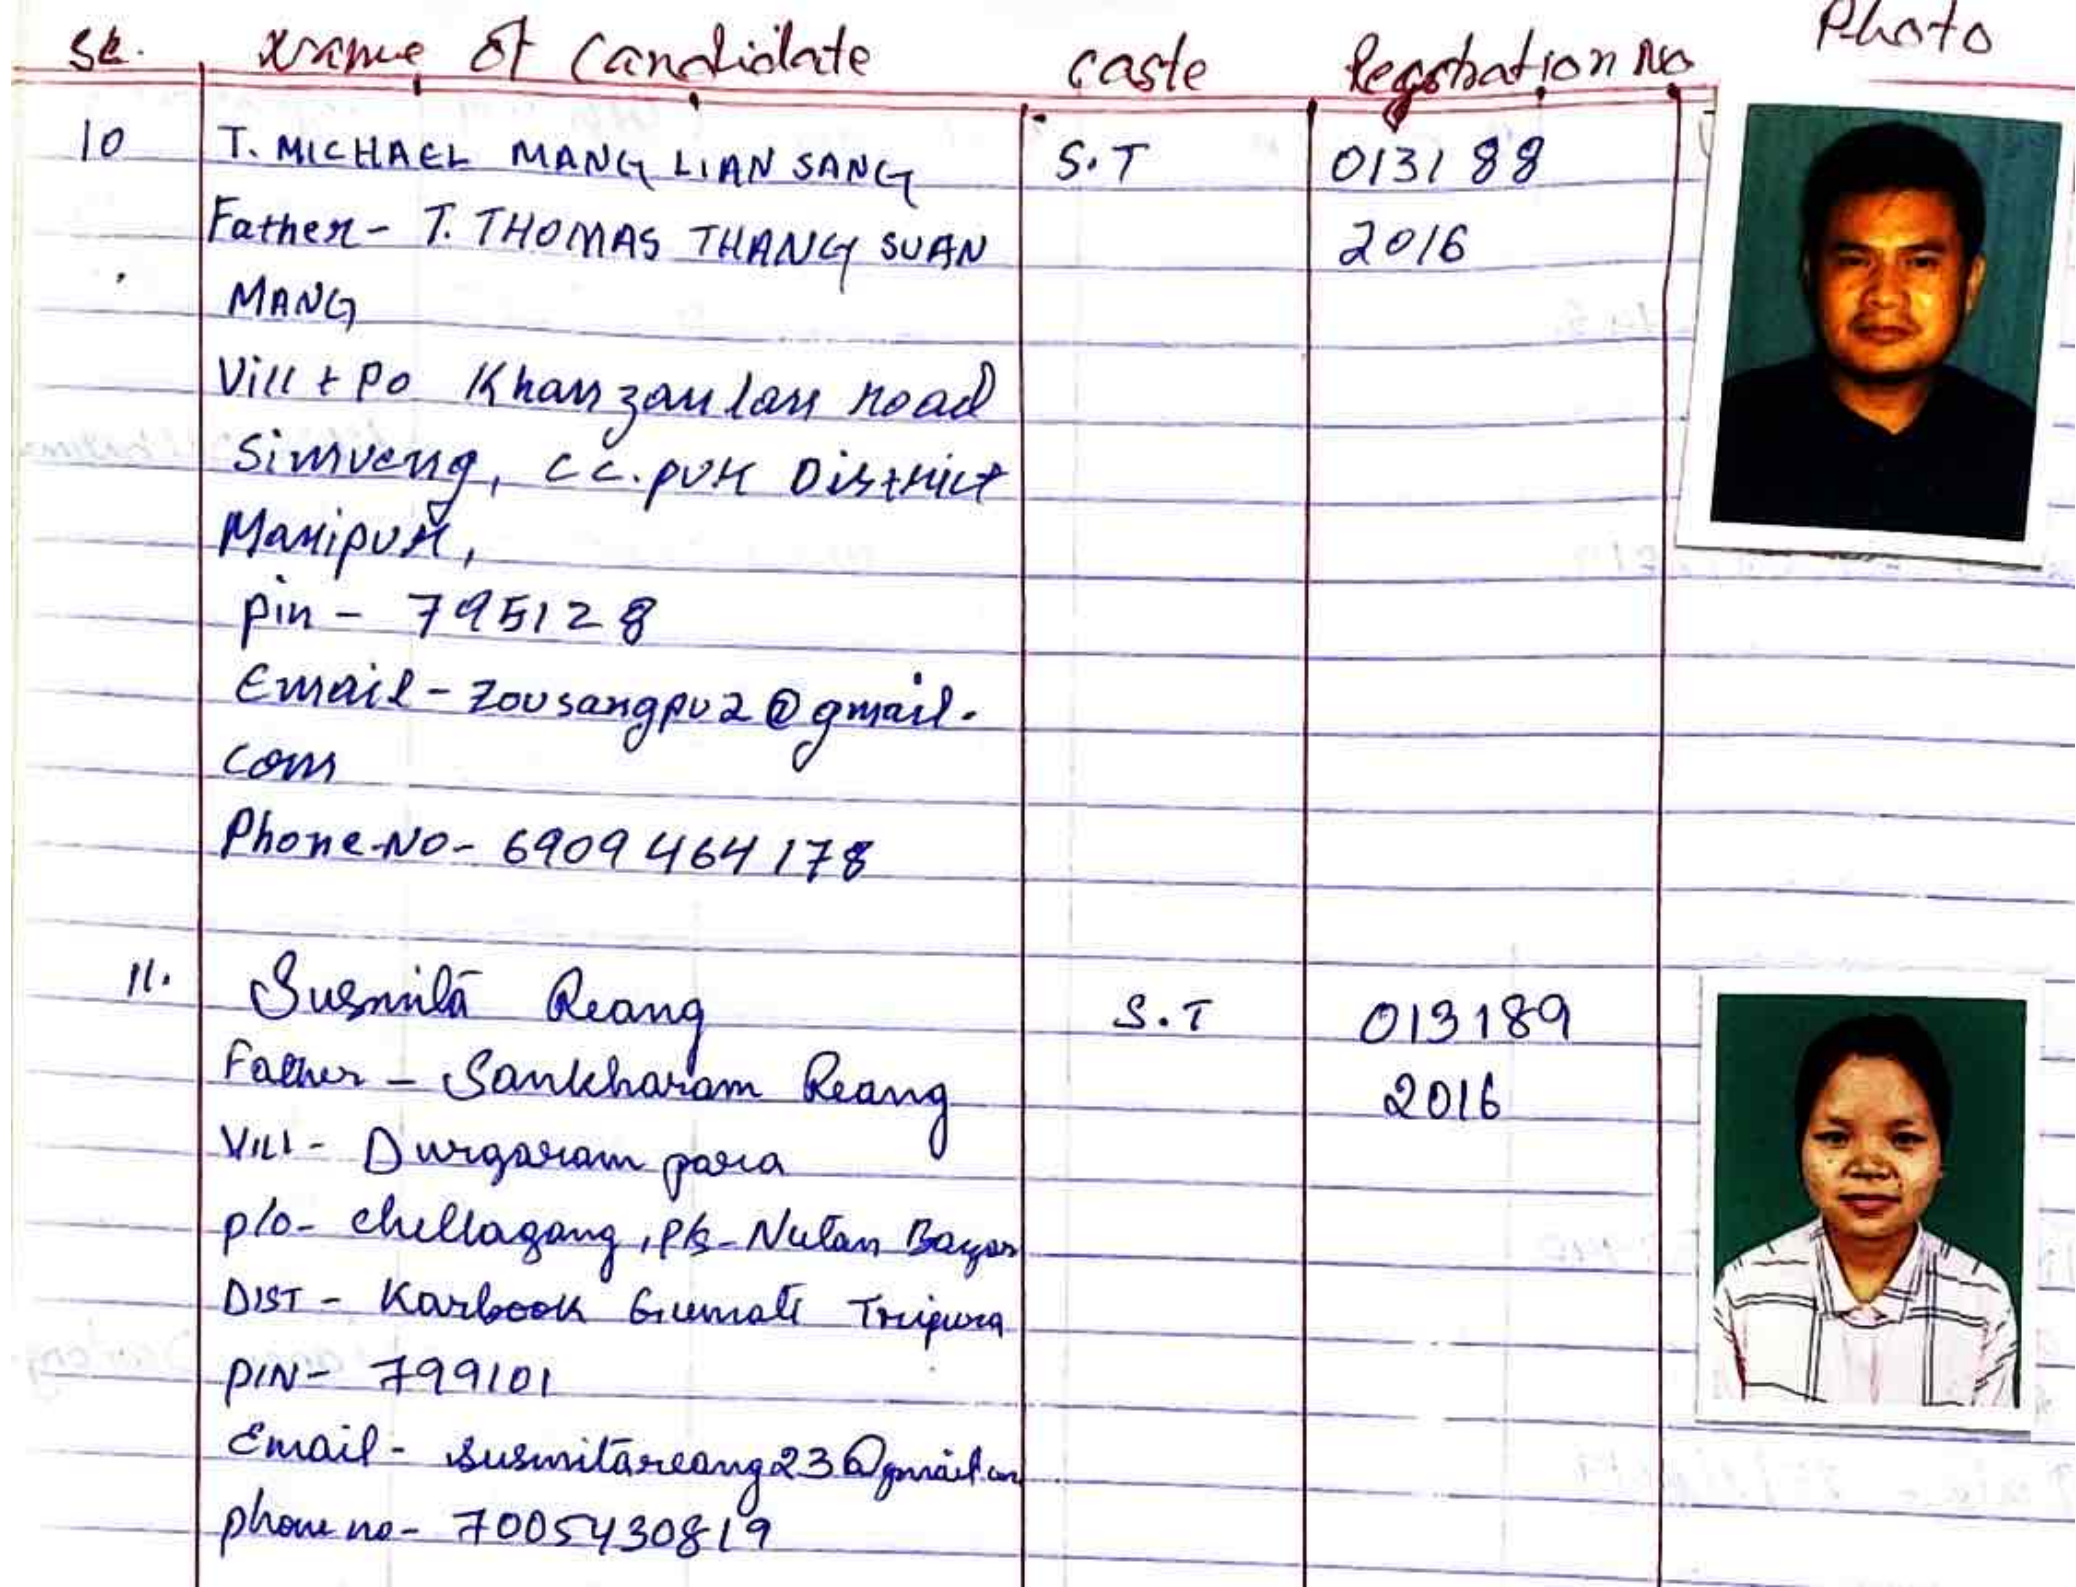 SL. Name of Candidate caste Registration No Photo
10 T. MICHAEL MANG LIAN SANG S.T 013188
Father - T. THOMAS THANG SUAN 2016
MANG
Vill + Po Khanzau lan road
Simveng, CC.pur District
Manipur,
pin - 795128
Email - zousangpu2@gmail.
com
Phone-No - 6909464178
11. Susmita Reang S.T 013189
Father - Sankharam Reang 2016
Vill - Durgaram para
p/o - chellagang, P/s - Nutan Bazar
DIST - Karbook Gumati Tripura
PIN - 799101
Email - susmitareang23@gmail.com
phone no - 7005430819